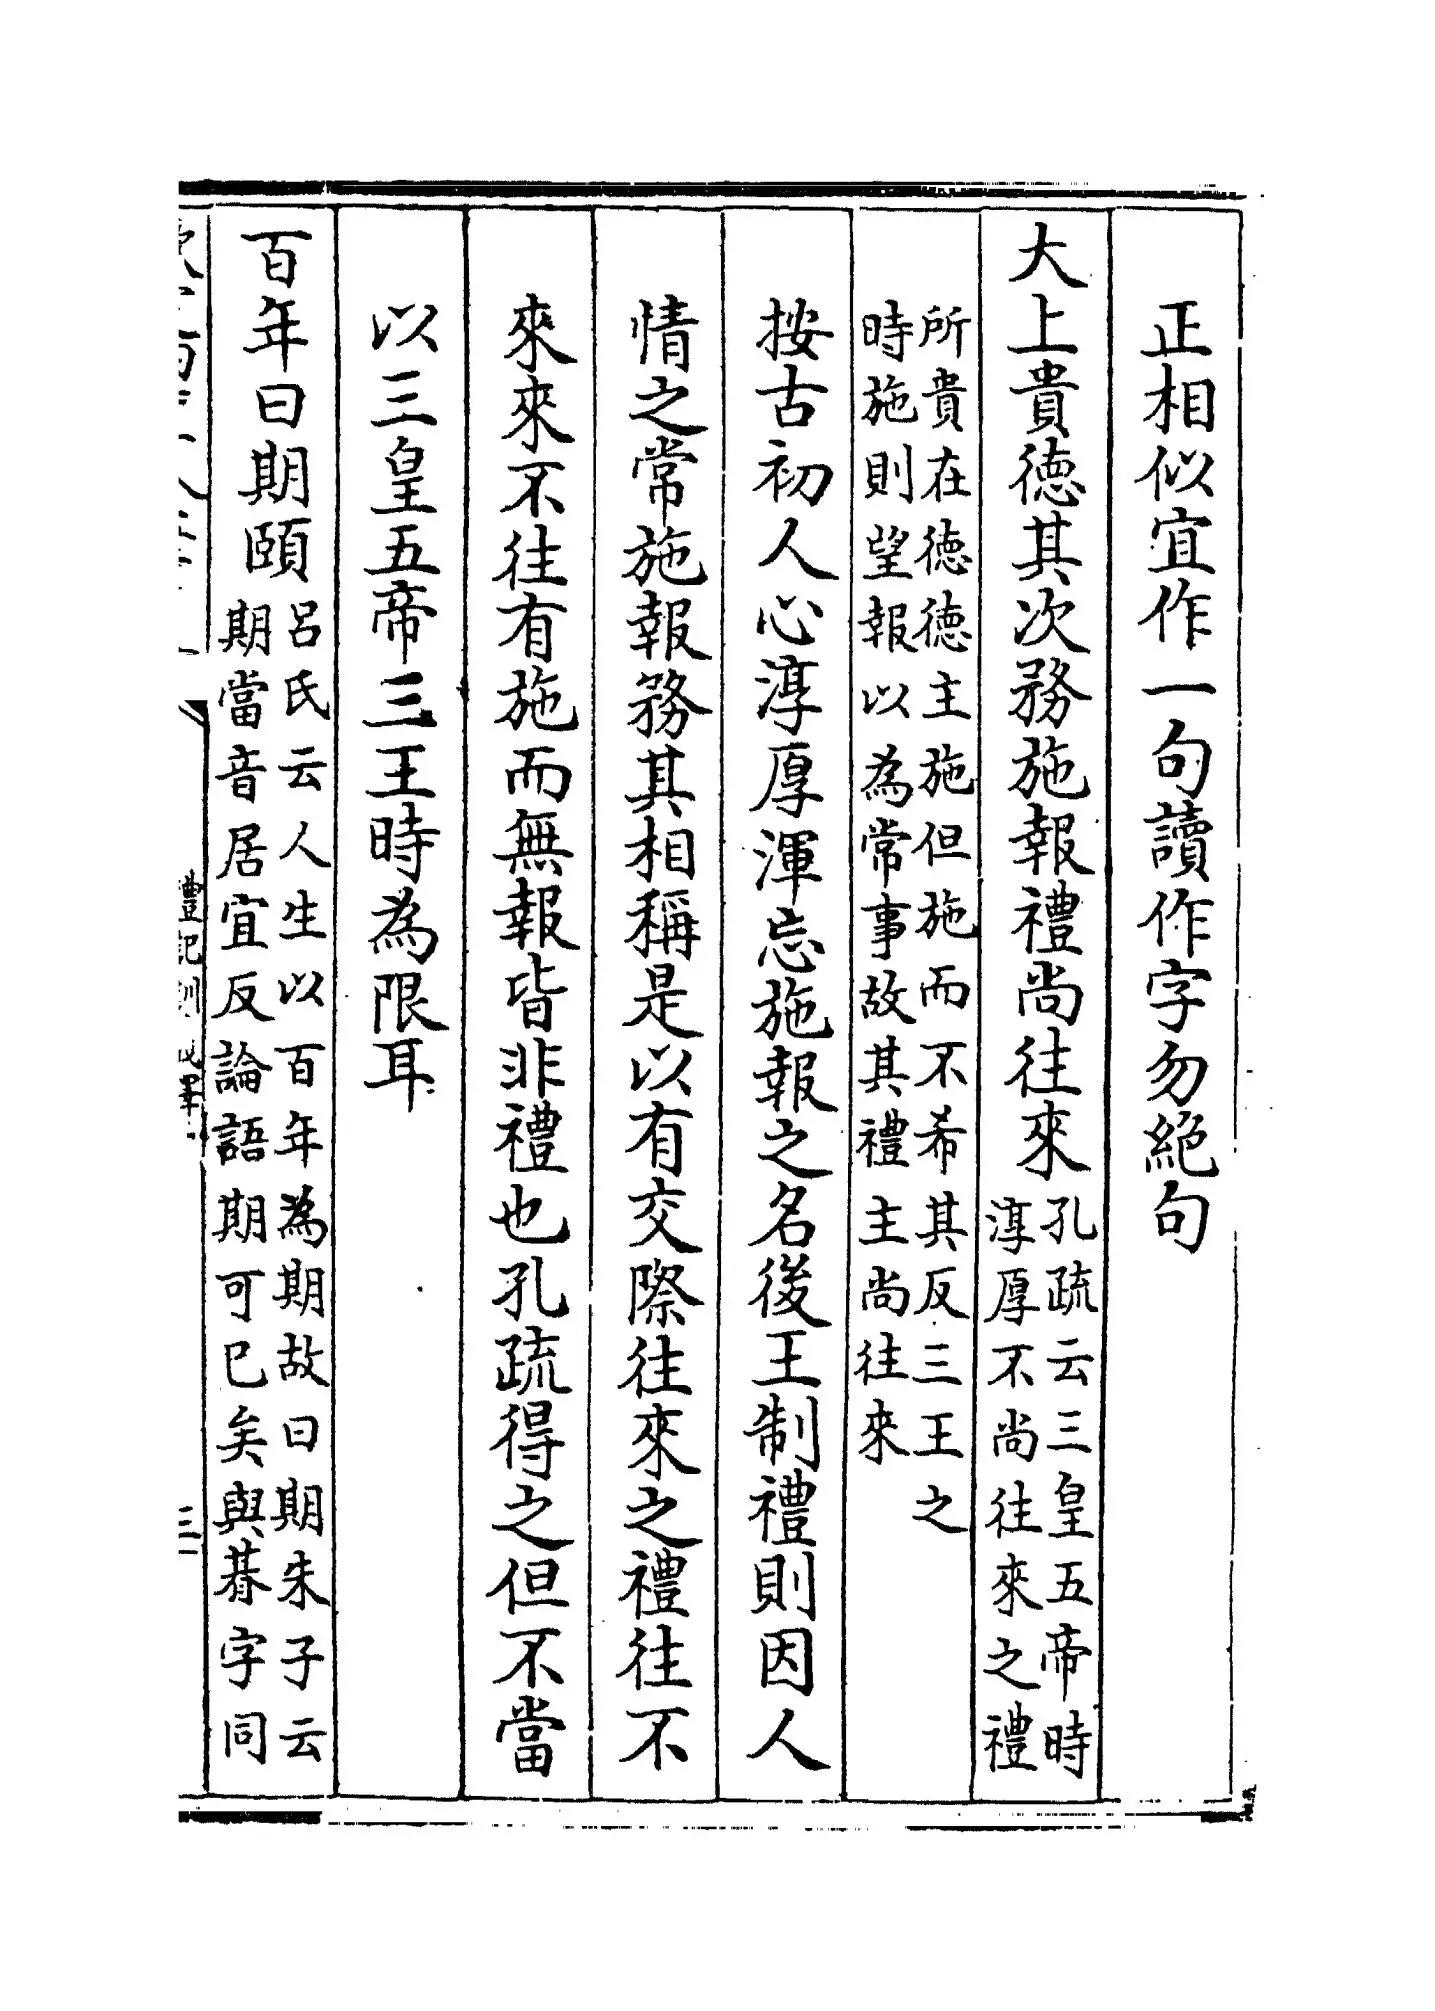 正相似宜作一句讀作字勿絕句
大上貴德其次務施報禮尚往來
孔疏云三皇五帝時
淳厚不尚往來之禮
所貴在德德主施但施而不希其反三王之
時施則望報以為常事故其禮主尚往來
按古初人心淳厚渾忘施報之名後王制禮則因人
情之常施報務其相稱是以有交際往來之禮往不
來來不往有施而無報皆非禮也孔疏得之但不當
以三皇五帝三王時為限耳
百年曰期頤
呂氏云人生以百年為期故曰期朱子云
期當音居宜反論語期可已矣與朞字同
禮記訓義擇言
三